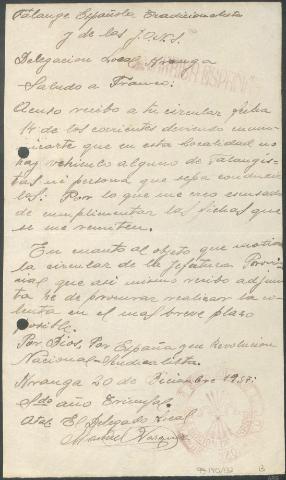 Falange Española Tradicionalista
y de las J.O.N.S.
Delegacion Local Aranga
Saludo a Franco:
Acuso recibo a tu circular fecha
14 de los corrientes deviendo comu-
nicarte que en esta localidad no
hay vehiculo alguno de falangis-
tas ni persona que sepa conducir
las: Por lo que me creo escusado
de cumplimentar las fichas que
se me remiten.
En cuanto al objeto que motiva
la circular de la Jefatura Provin
cial que asi mismo recibo adjun
ta he de procurar realizar la
en el mas breve plazo
posible.
Por Dios, Por España y su Revolucion
Nacional-Sindicalista.
Aranga 20 de Diciembre 1937:
2do año Triunfal.
El Delegado Local
Manuel Vazquez